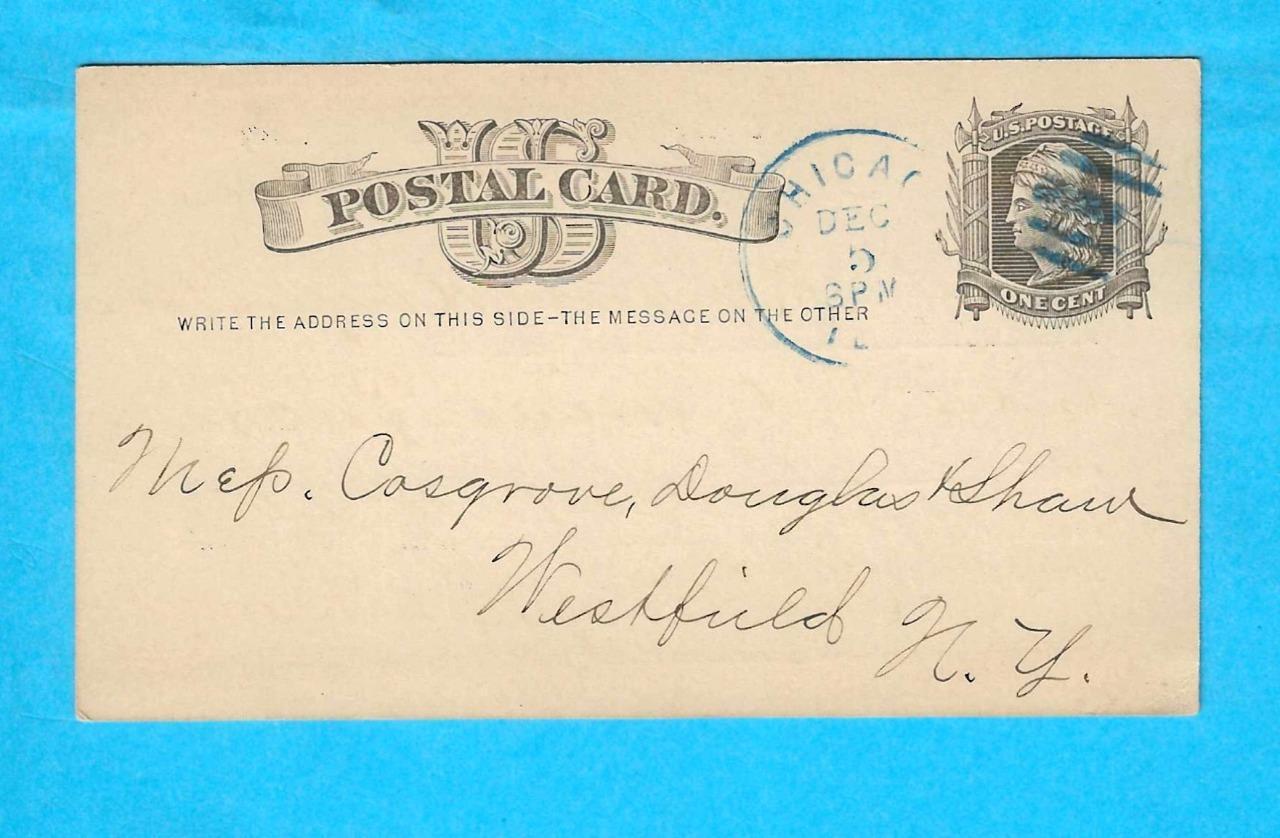 US
POSTAL CARD.
U.S. POSTAGE
ONE CENT
CHICAG
DEC
5
6PM
WRITE THE ADDRESS ON THIS SIDE–THE MESSAGE ON THE OTHER
Mess. Cosgrove, Douglas & Shaw
Westfield
N. Y.